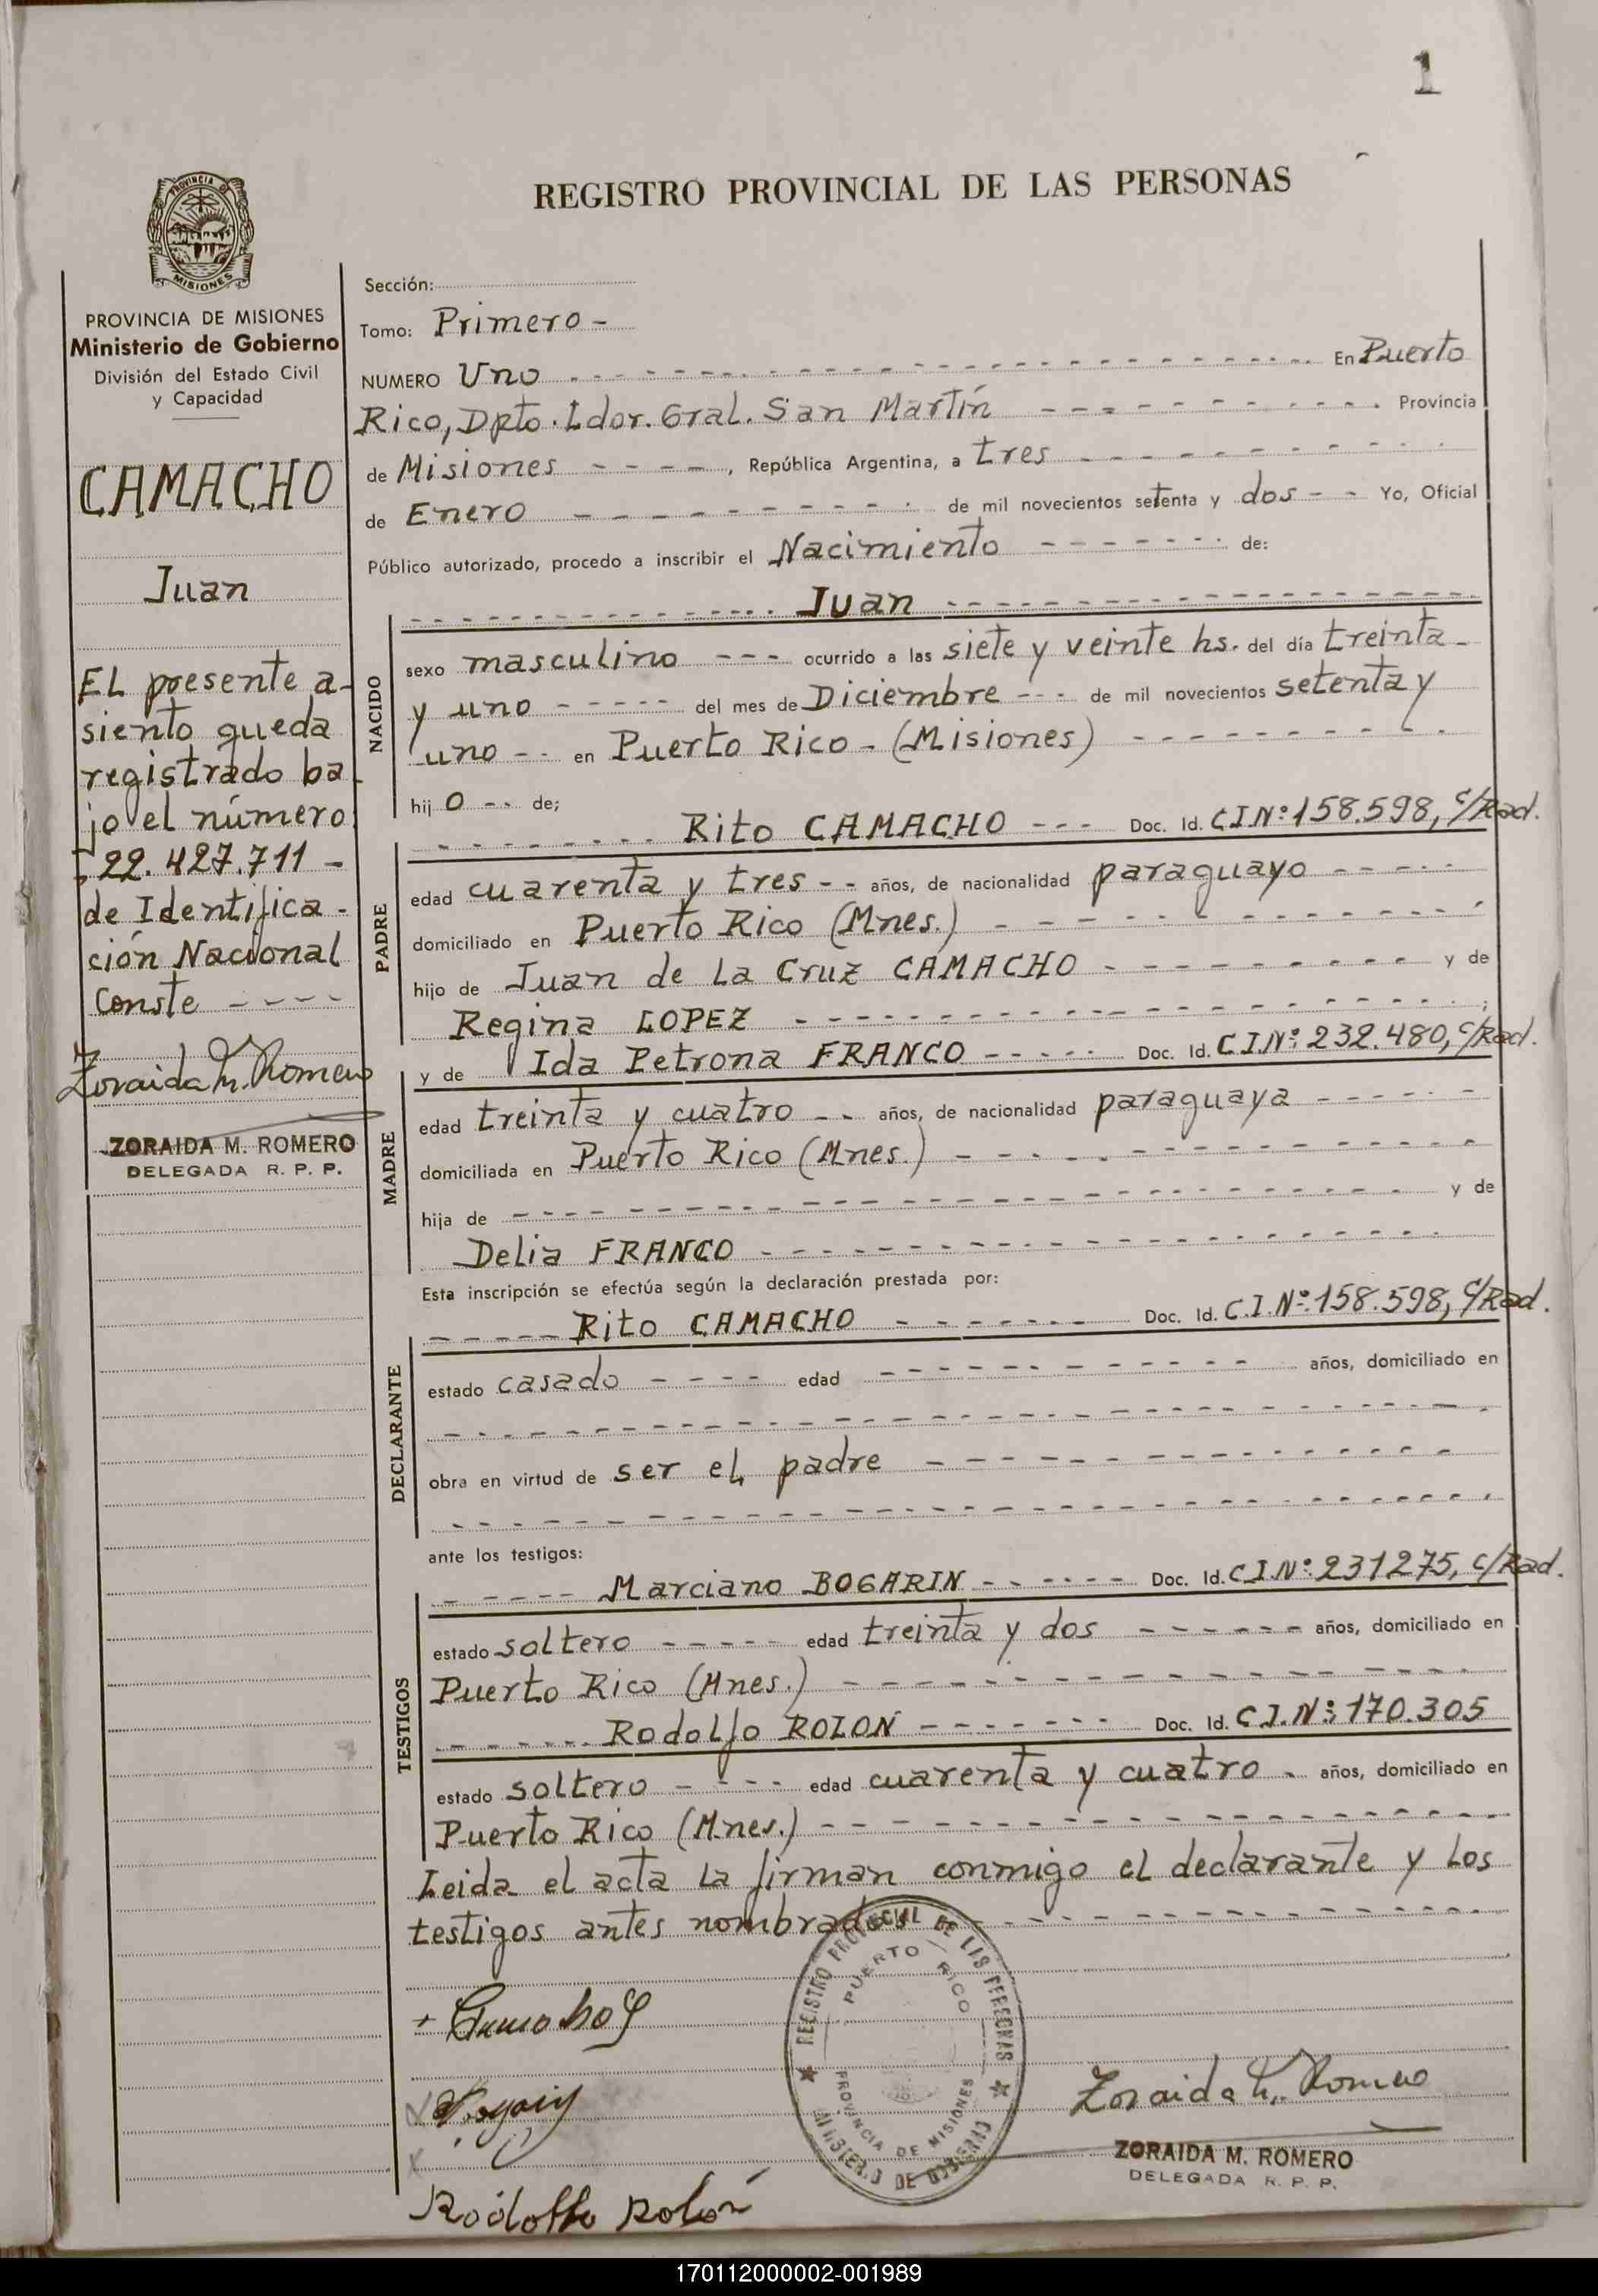 1
REGISTRO PROVINCIAL DE LAS PERSONAS
PROVINCIA DE
MISIONES
PROVINCIA DE MISIONES
Ministerio de Gobierno
División del Estado Civil
y Capacidad
CAMACHO
Juan
EL presente a-
siento queda
registrado ba-
jo el número
22.427.711 -
de Identifica-
ción Nacional
Conste ----
Zoraida M. Romero
ZORAIDA M. ROMERO
DELEGADA R. P. P.
Sección:
Tomo: Primero -
NUMERO Uno --- En Puerto
Rico, Dpto. Ldor. Gral. San Martín --- Provincia
de Misiones ----, República Argentina, a tres ---
de Enero --- de mil novecientos setenta y dos -- Yo, Oficial
Público autorizado, procedo a inscribir el Nacimiento --- de:
--- Juan ---
NACIDO
sexo masculino --- ocurrido a las siete y veinte hs. del día treinta-
y uno ----- del mes de Diciembre --- de mil novecientos setenta y
uno -- en Puerto Rico - (Misiones) ---
hij o -- de;
--- Rito CAMACHO --- Doc. Id. C.I.Nº:158.598, c/Rad.
PADRE
edad cuarenta y tres -- años, de nacionalidad paraguayo -----
domiciliado en Puerto Rico (Mnes.) ---
hijo de Juan de La Cruz CAMACHO --- y de
Regina LOPEZ --- ;
y de Ida Petrona FRANCO ----- Doc. Id. C.I.Nº:232.480, c/Rad.
MADRE
edad treinta y cuatro -- años, de nacionalidad paraguaya -----
domiciliada en Puerto Rico (Mnes.) ---
hija de --- y de
Delia FRANCO ---
Esta inscripción se efectúa según la declaración prestada por:
----- Rito CAMACHO ----- Doc. Id. C.I.Nº:158.598, c/Rad.
DECLARANTE
estado casado ---- edad --- años, domiciliado en
---
obra en virtud de ser el padre ---
---
ante los testigos:
----- Marciano BOGARIN ----- Doc. Id. C.I.Nº:231275, c/Rad.
TESTIGOS
estado soltero ----- edad treinta y dos ------ años, domiciliado en
Puerto Rico (Mnes.) ---
------ Rodolfo ROLON ------- Doc. Id. C.I.Nº:170.305
estado soltero ---- edad cuarenta y cuatro - años, domiciliado en
Puerto Rico (Mnes.) ---
Leida el acta la firman conmigo el declarante y los
testigos antes nombrados ---
REGISTRO PROVINCIAL DE LAS PERSONAS
PUERTO RICO
PROVINCIA DE MISIONES
MINISTERIO DE GOBIERNO
Rodolfo Rolón
Zoraida M. Romero
ZORAIDA M. ROMERO
DELEGADA R. P. P.
170112000002-001989